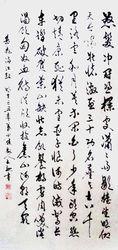 怒髮冲冠憑闌處瀟瀟雨歇抬望眼仰
天長嘯壯懷激烈三十功名塵與土八千
里路雲和月莫等閒白了少年頭空悲
切靖康恥猶未雪臣子恨何時滅駕長
車踏破賀蘭山缺壯志飢餐胡虜肉笑談
渴飲匈奴血待從頭收拾舊山河朝天闕
岳飛滿江紅